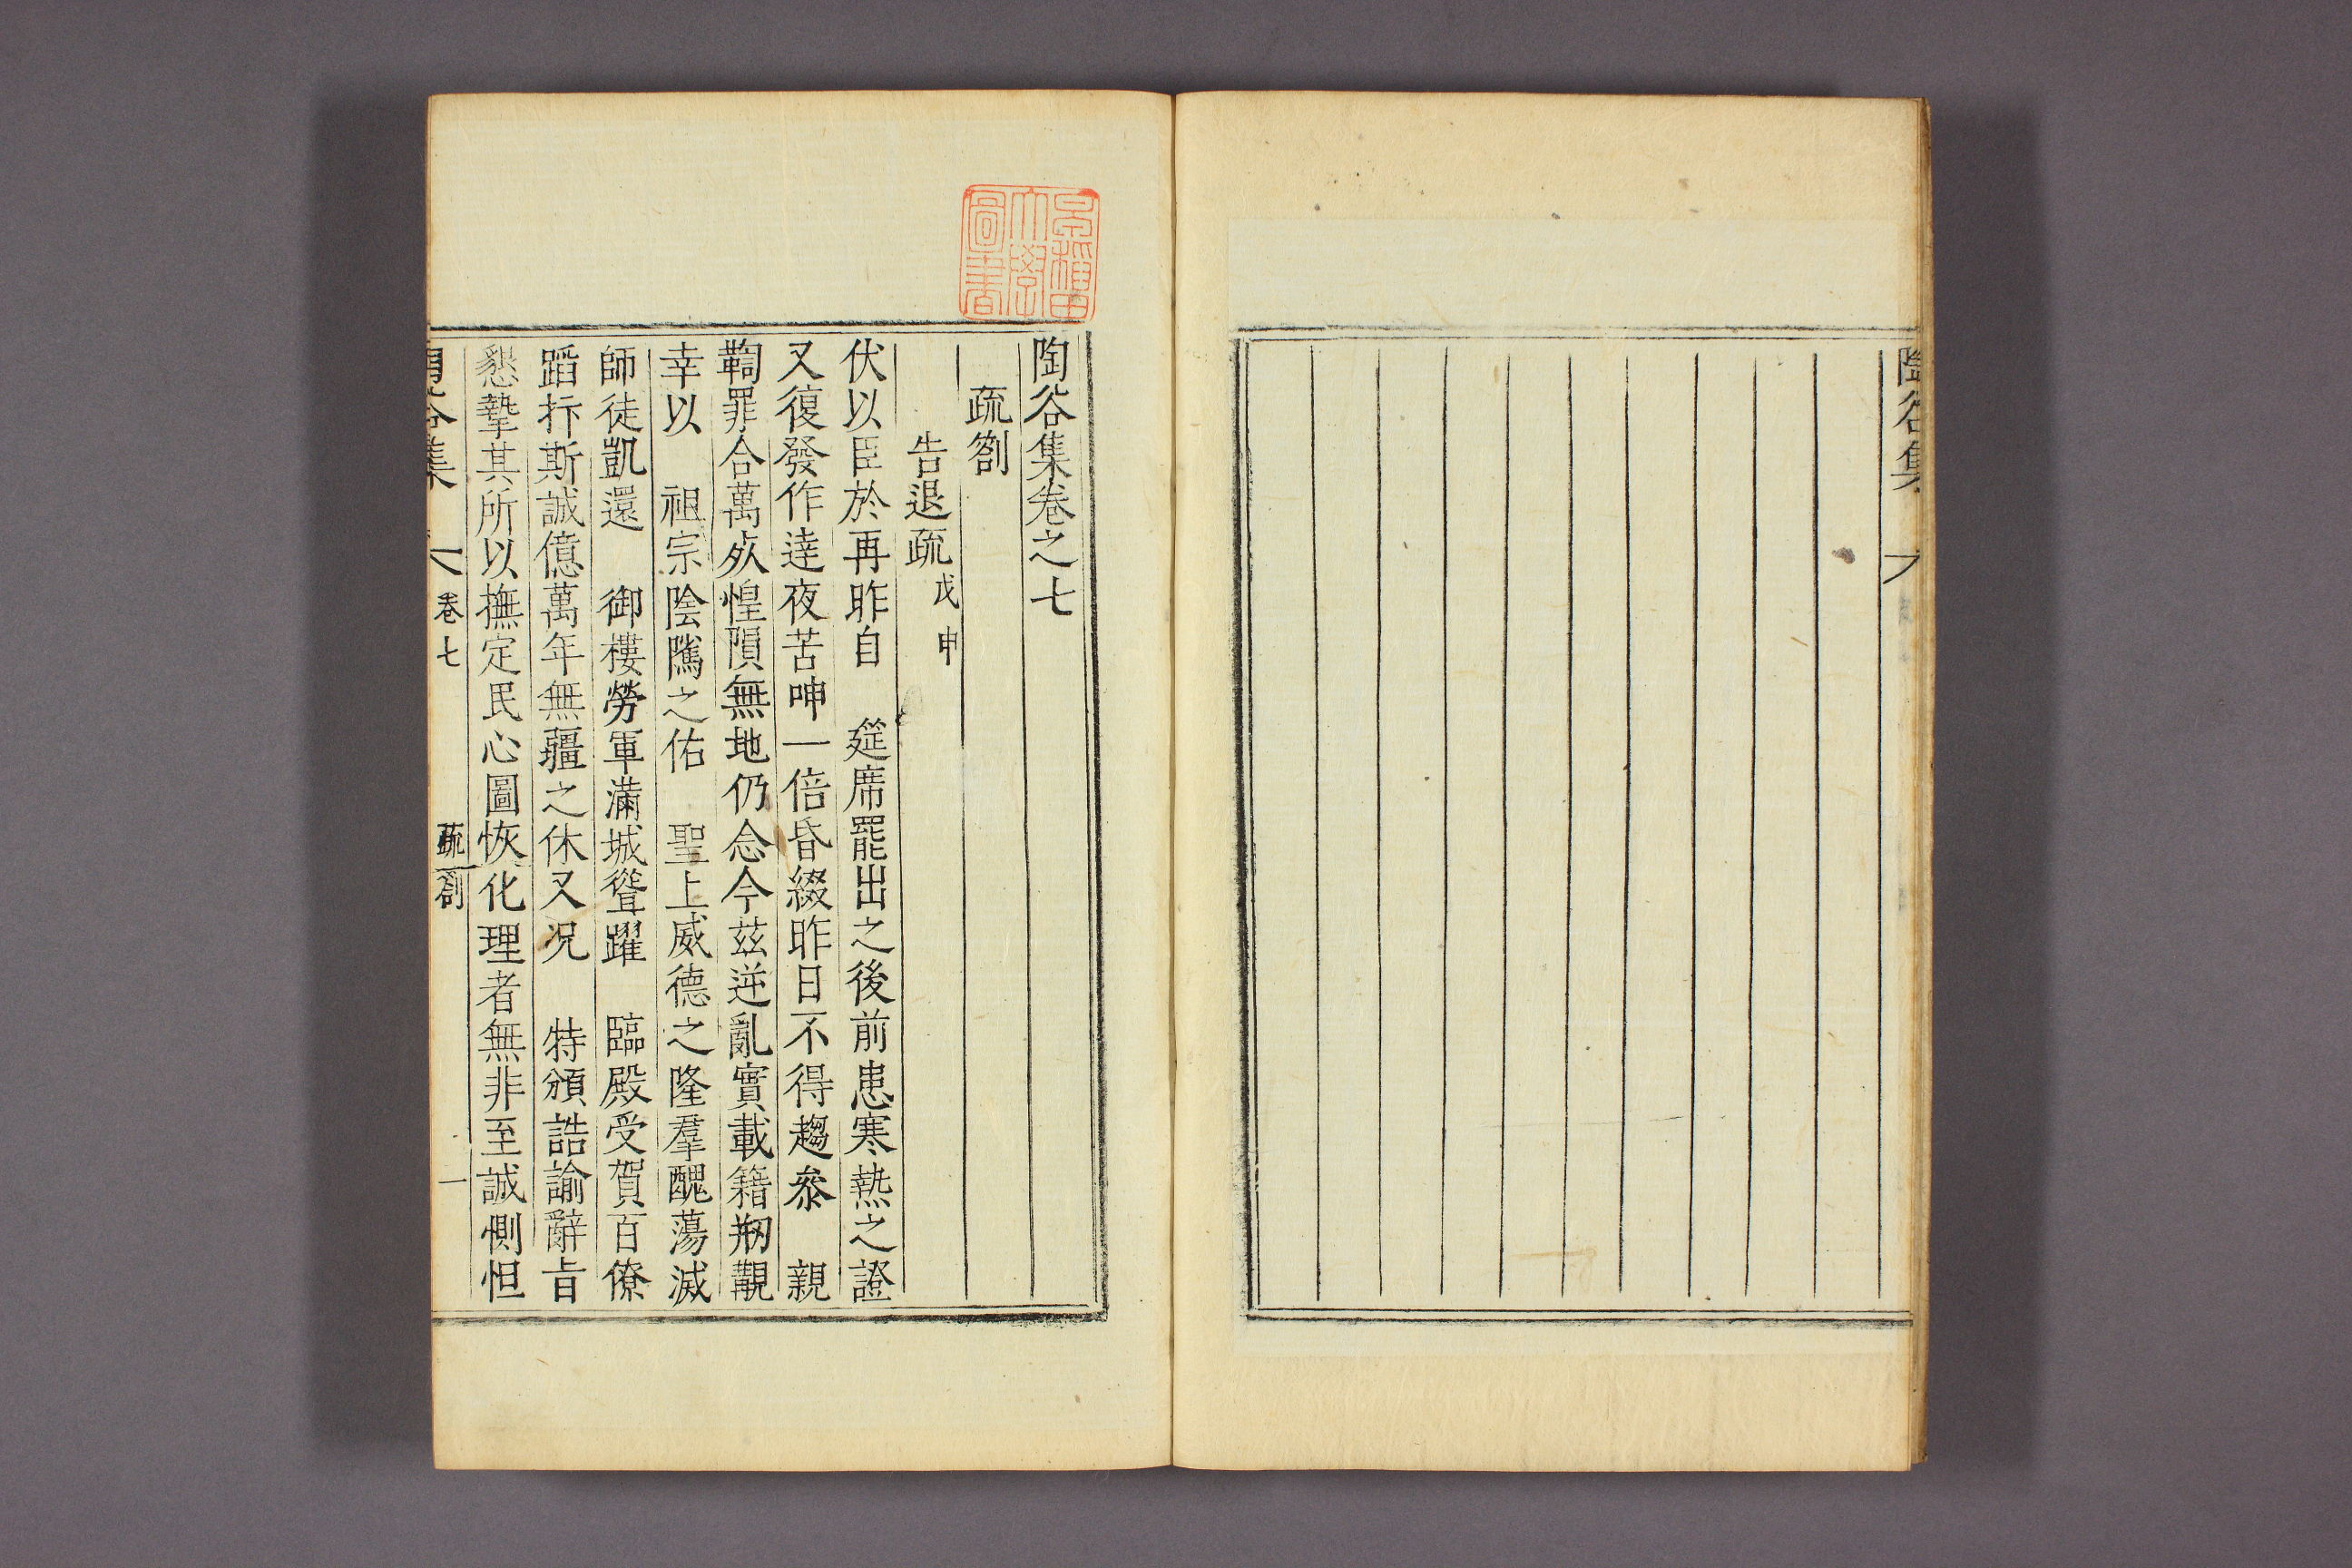 陶谷集
早稲田大學圖書
陶谷集卷之七
疏劄
告退疏戊申
伏以臣於再昨自 筵席罷出之後前患寒熱之證
又復發作達夜苦呻一倍昏綴昨日不得趨叅 親
鞫罪合萬㱡惶隕無地仍念今玆逆亂實載籍刱覯
幸以 祖宗陰隲之佑 聖上威德之隆羣醜蕩滅
師徒凱還 御樓勞軍滿城聳躍 臨殿受賀百僚
蹈抃斯誠億萬年無疆之休又况 特頒誥諭辭旨
懇摯其所以撫定民心圖恢化理者無非至誠惻怛
陶谷集 卷七 疏劄 一